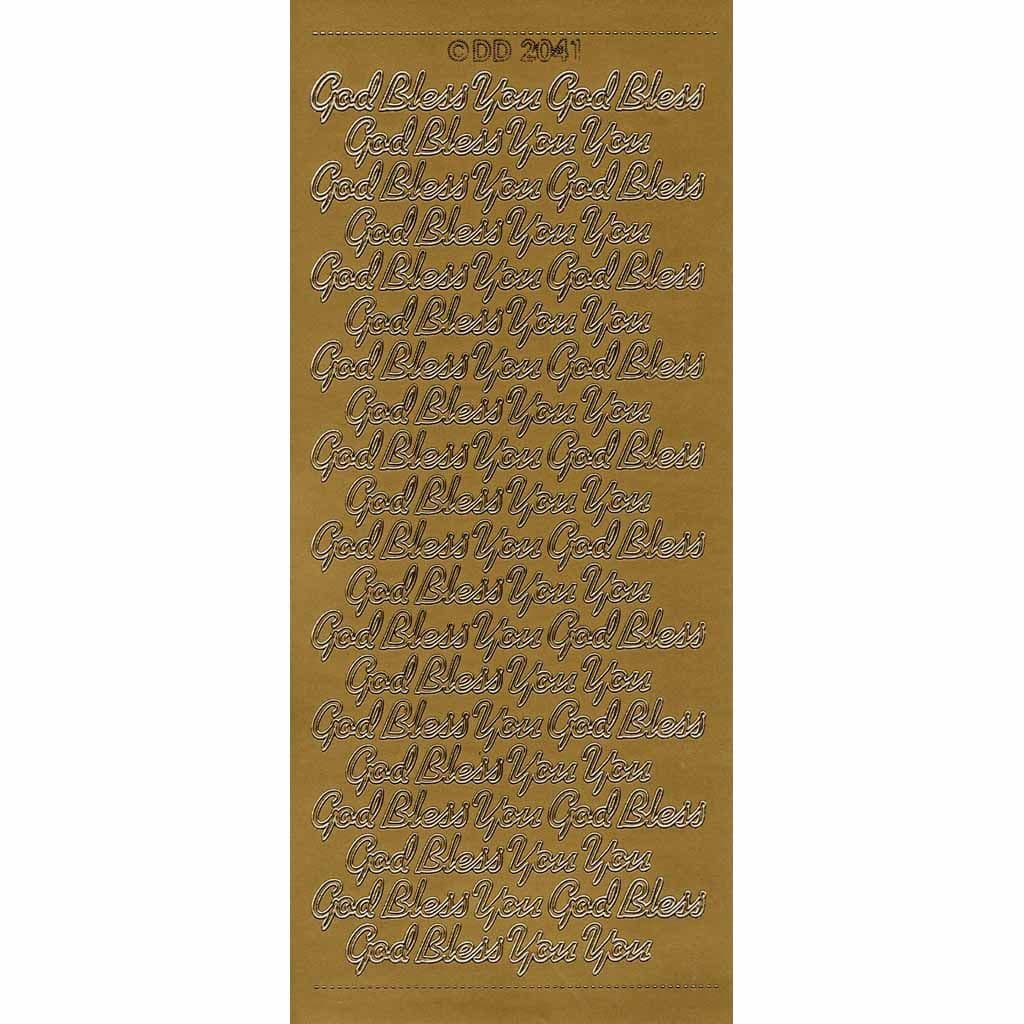 ©DD 2041
God Bless You God Bless
God Bless You You
God Bless You God Bless
God Bless You You
God Bless You God Bless
God Bless You You
God Bless You God Bless
God Bless You You
God Bless You God Bless
God Bless You You
God Bless You God Bless
God Bless You You
God Bless You God Bless
God Bless You You
God Bless You God Bless
God Bless You You
God Bless You God Bless
God Bless You You
God Bless You God Bless
God Bless You You